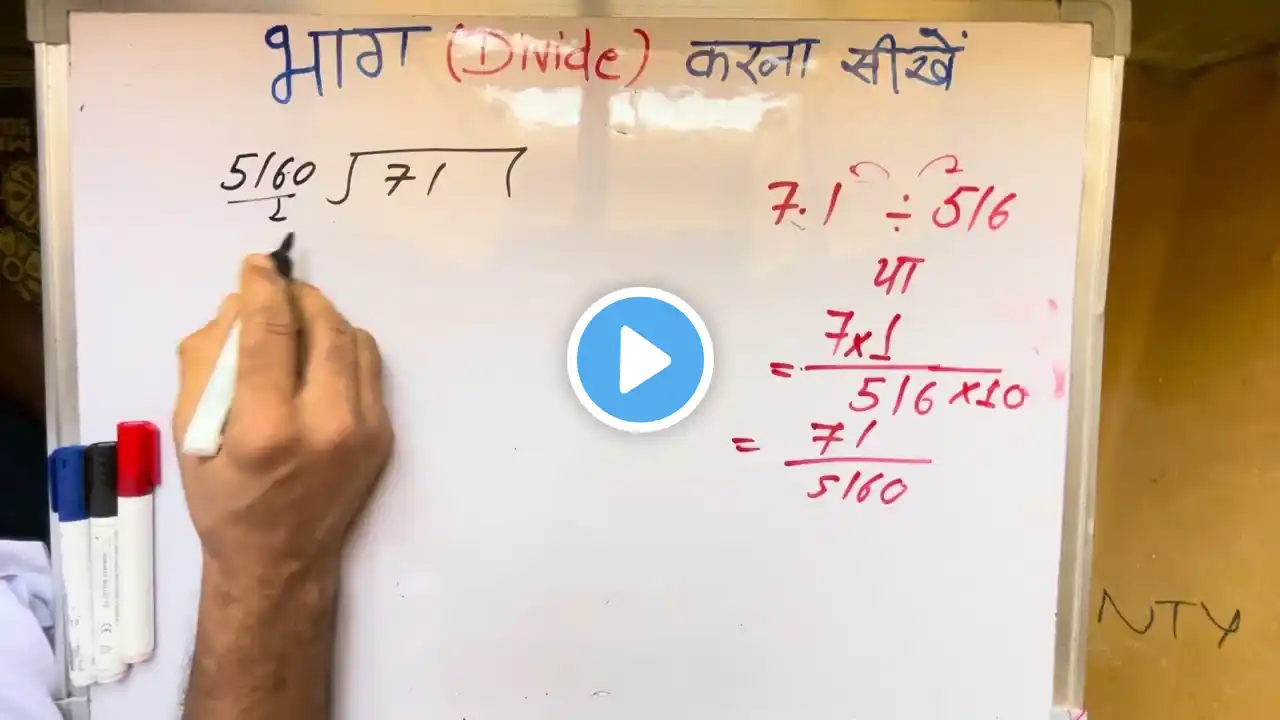 भाग (Divide) करना सीखें
5160 ) 71 (
2
7.1 ÷ 516
या
= 7×1 / 516×10
= 71 / 5160
NTY